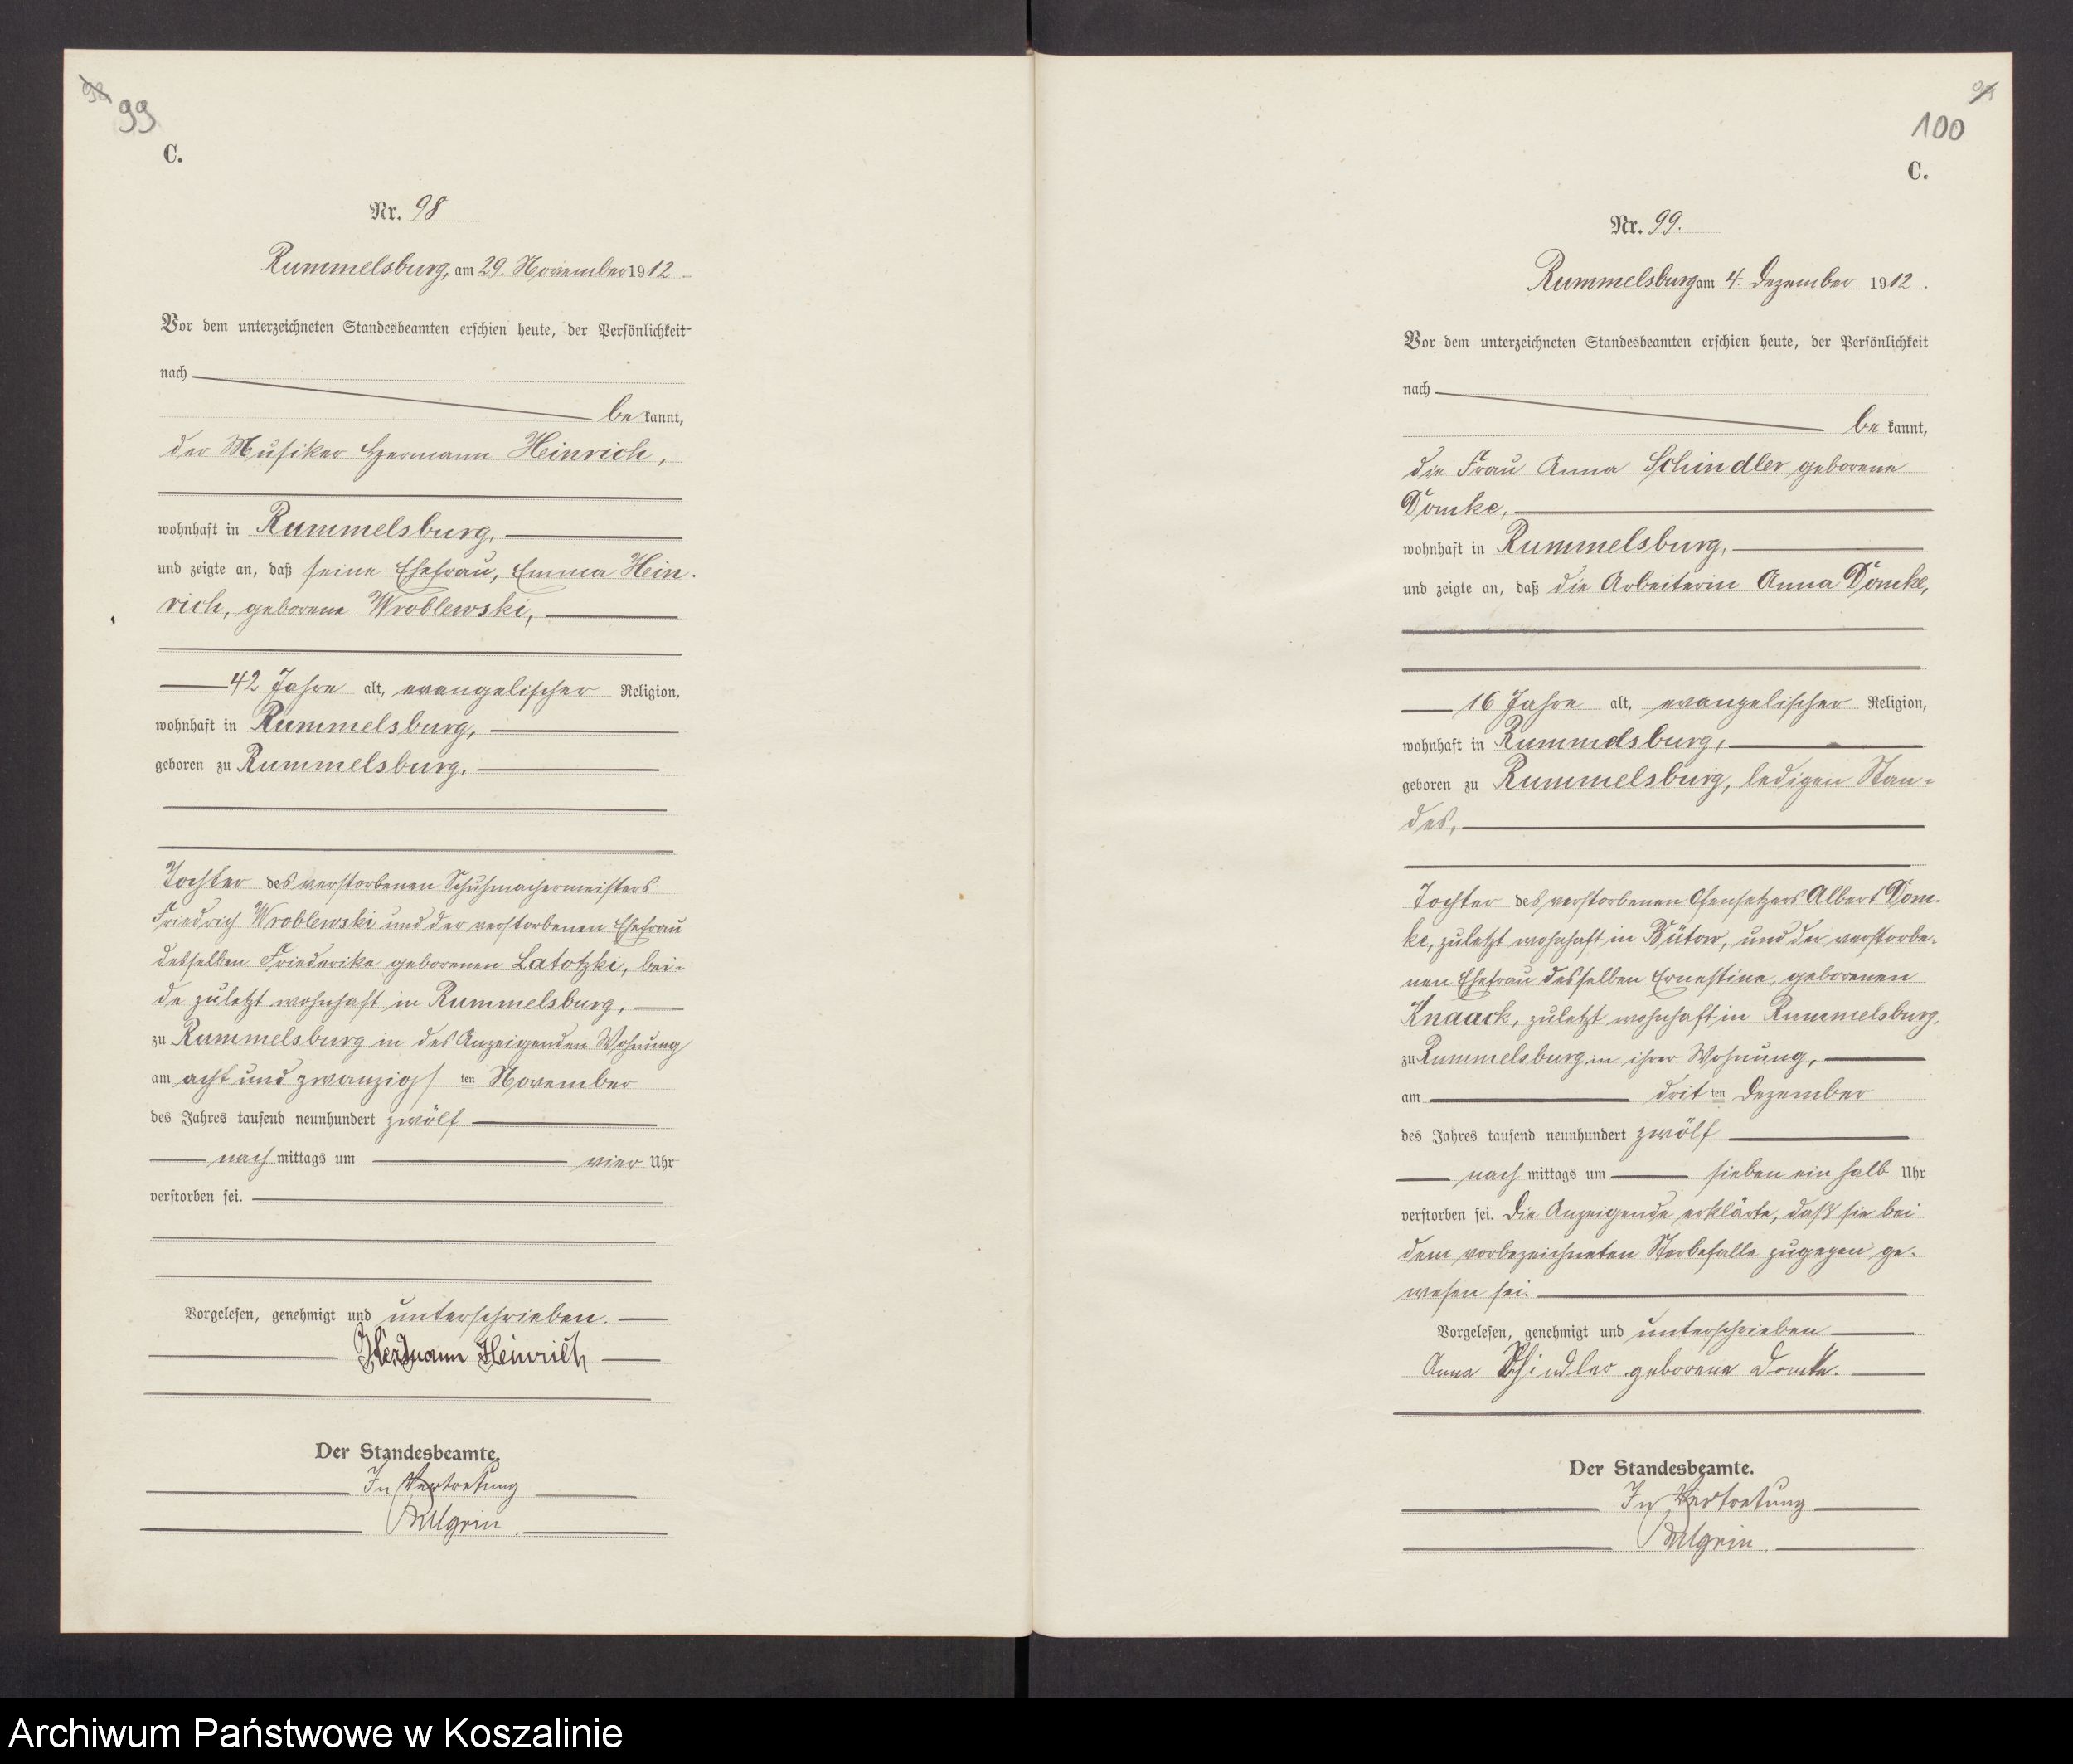 98
99
C.
Nr. 98
Rummelsburg, am 29. November 1912
Vor dem unterzeichneten Standesbeamten erschien heute, der Persönlichkeit
nach
be kannt,
der Musiker Hermann Heinrich,
wohnhaft in Rummelsburg,
und zeigte an, daß seine Ehefrau, Emma Hein-
rich, geborene Wroblewski,
42 Jahre alt, evangelischer Religion,
wohnhaft in Rummelsburg,
geboren zu Rummelsburg,
Tochter des verstorbenen Schuhmachermeisters
Friedrich Wroblewski und der verstorbenen Ehefrau
desselben Friederike geborenen Latotzki, bei-
de zuletzt wohnhaft in Rummelsburg,
zu Rummelsburg in des Anzeigenden Wohnung
am acht und zwanzigsten November
des Jahres tausend neunhundert zwölf
nach mittags um vier Uhr
verstorben sei.
Vorgelesen, genehmigt und unterschrieben.
Hermann Heinrich
Der Standesbeamte.
In Vertretung
Pilgrim.
100
C.
Nr. 99.
Rummelsburg am 4. Dezember 1912.
Vor dem unterzeichneten Standesbeamten erschien heute, der Persönlichkeit
nach
be kannt,
die Frau Anna Schindler geborene
Domke,
wohnhaft in Rummelsburg,
und zeigte an, daß die Arbeiterin Anna Domke,
16 Jahre alt, evangelischer Religion,
wohnhaft in Rummelsburg,
geboren zu Rummelsburg, ledigen Stan-
des,
Tochter des verstorbenen Ofensetzers Albert Dom-
ke, zuletzt wohnhaft in Bütow, und der verstorbe-
nen Ehefrau desselben Ernestine, geborenen
Knaack, zuletzt wohnhaft in Rummelsburg,
zu Rummelsburg in ihrer Wohnung,
am dritten Dezember
des Jahres tausend neunhundert zwölf
nach mittags um sieben ein halb Uhr
verstorben sei. Die Anzeigende erklärte, daß sie bei
dem vorbezeichneten Sterbefalle zugegen ge-
wesen sei.
Vorgelesen, genehmigt und unterschrieben
Anna Schindler geborene Domke.
Der Standesbeamte.
In Vertretung
Pilgrim.
Archiwum Państwowe w Koszalinie